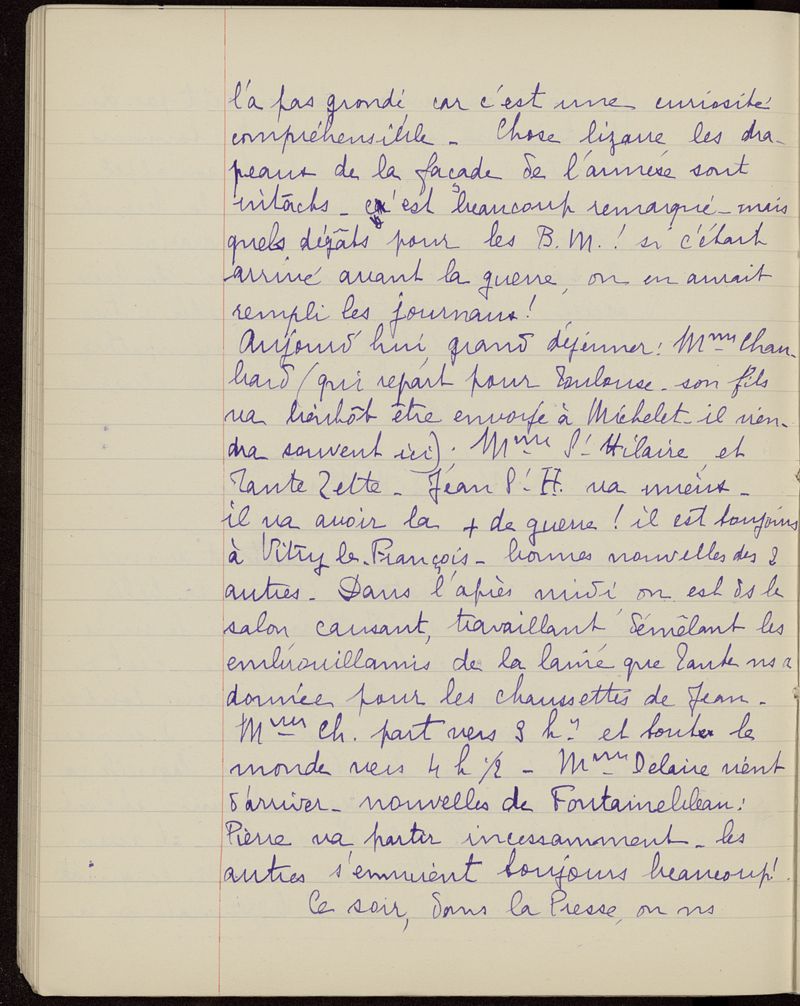 l'a pas grondé car c'est une curiosité
compréhensible - Chose bizarre les dra-
peaux de la façade de l'armée sont
intacts - c'est beaucoup remarqué - mais
quels dégâts pour les B.M. ! si c'était
arrivé avant la guerre, on en aurait
rempli les journaux !
Aujourd'hui, grand déjeuner : Mme Chau-
bard (qui repart pour Toulouse - son fils
va bientôt être envoyé à Michelet - il vien-
dra souvent ici). Mme St Hilaire et
Tante Zette - Jean St H. va mieux -
il va avoir la + de guerre ! il est toujours
à Vitry le-François - bonnes nouvelles des 2
autres - Dans l'après midi on est ds le
salon causant, travaillant démêlant les
embrouillamis de la laine que Tante ns a
donnée pour les chaussettes de Jean -
Mme Ch. part vers 3 h. et toute le
monde vers 4 h 1/2 - Mme Delaire vient
d'arriver - nouvelles de Fontainebleau :
Pierre va partir incessamment - les
autres s'ennuient toujours beaucoup !
Ce soir, dans la Presse, on ns